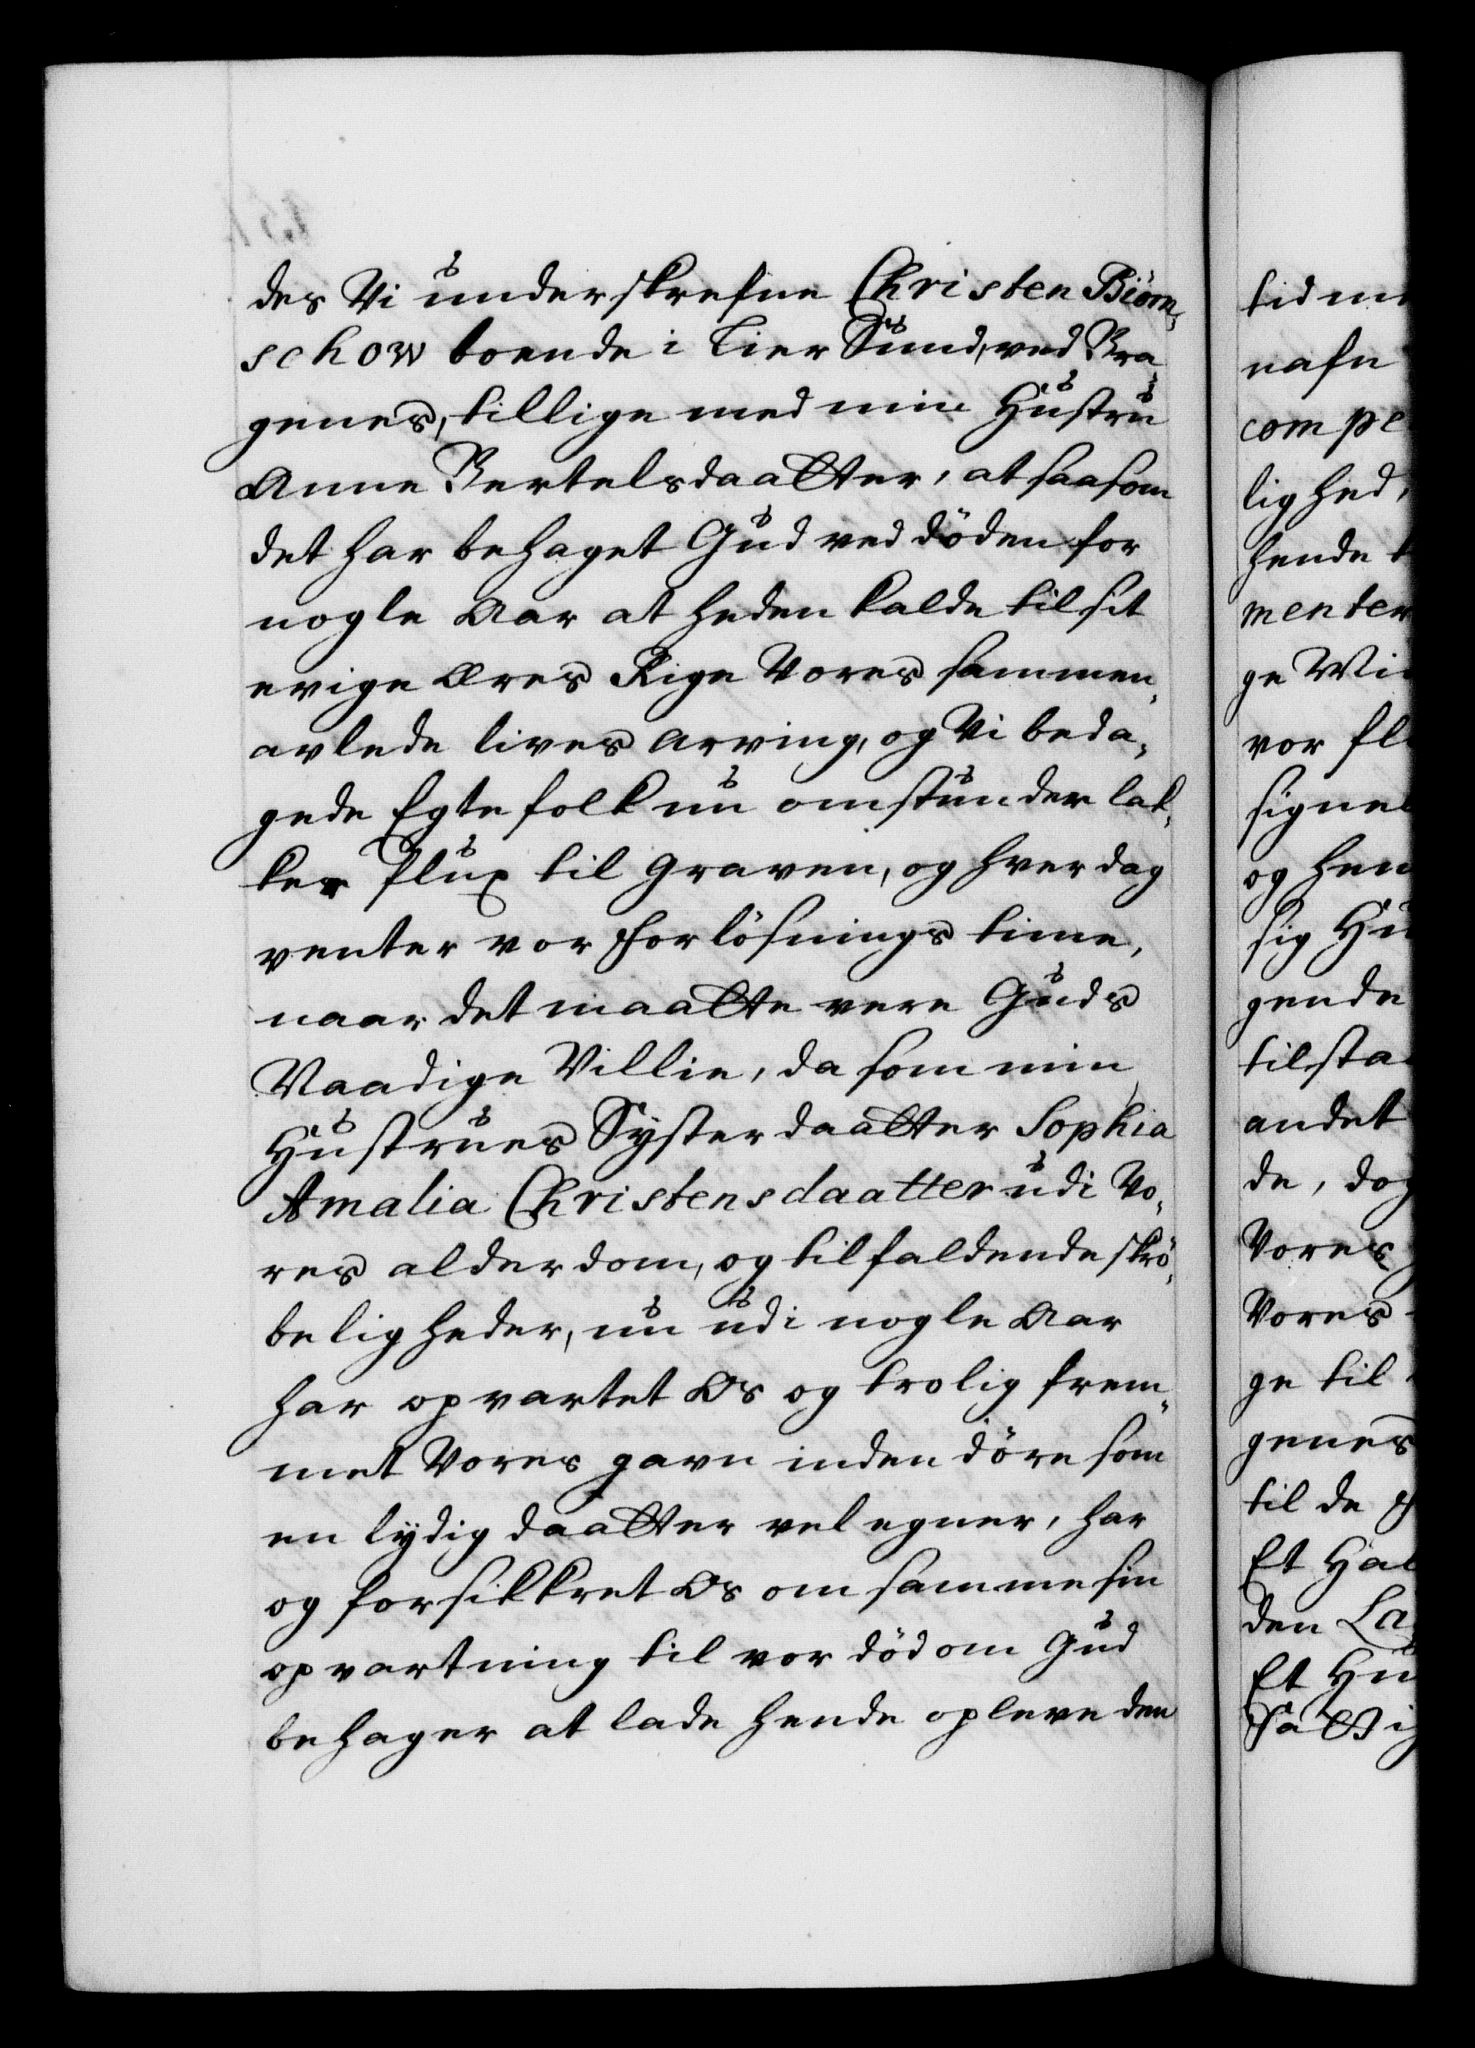 des Vi underskrefne Christen Biörn-
schow boende i Lier Sund, ved Bra-
genes, tillige med min Hustru
Anne Bertelsdaatter, at saasom
det har behaget Gud ved döden for
nogle Aar at heden kalde til sit
evige Æres Rige Vores sammen-
avlede lives Arving, og Vi beda-
gede Egtefolk nu omstunder lak-
ker flux til Graven, og hver dag
venter vor forlösnings time,
naar det maatte vere Guds
Naadige Villie, da som min
Hustrues Systerdaatter Sophia
Amalia Christensdaatter udi Vo-
res alderdom, og tilfaldende skrö-
beligheder, nu udi nogle Aar
har opvartet Os og trolig frem-
met Vores gavn inden döre som
en lydig daatter vel egner, har
og forsikkret Os om samme sin
opvartning til vor död om Gud
behager at lade hende opleve den
tid
nafn
compe
lighed,
hende
menter
ge
vor
signel
og hen
sig Hu
gende
tilsta
andet
de, dog
Vores
Vores
ge til
genes
til de
Et Hal
den La
Et Hu